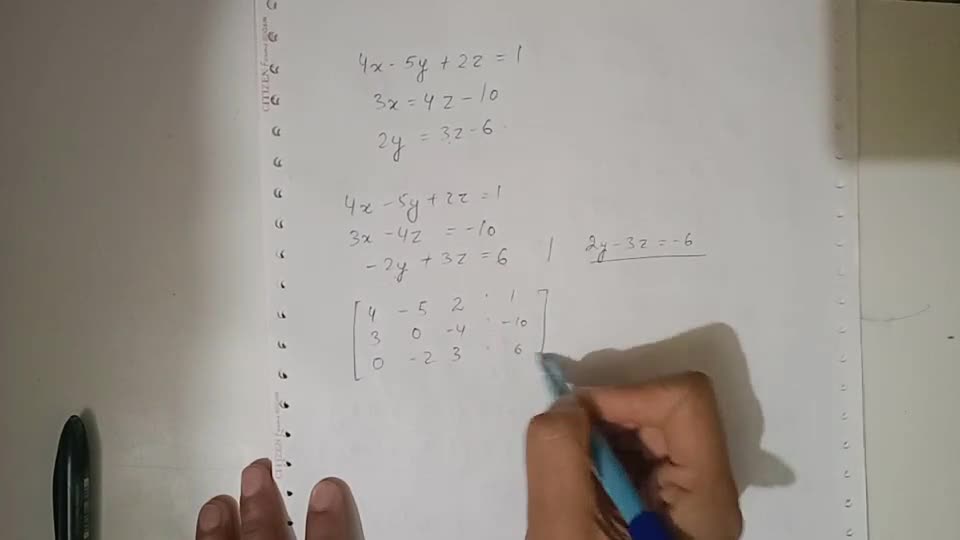 CITIZEN
4x - 5y + 2z = 1
3x = 4z - 10
2y = 3z - 6
4x - 5y + 2z = 1
3x - 4z = -10
-2y + 3z = 6 | 2y - 3z = -6
4 -5 2 : 1
3 0 -4 : -10
0 -2 3 : 6
CITIZEN